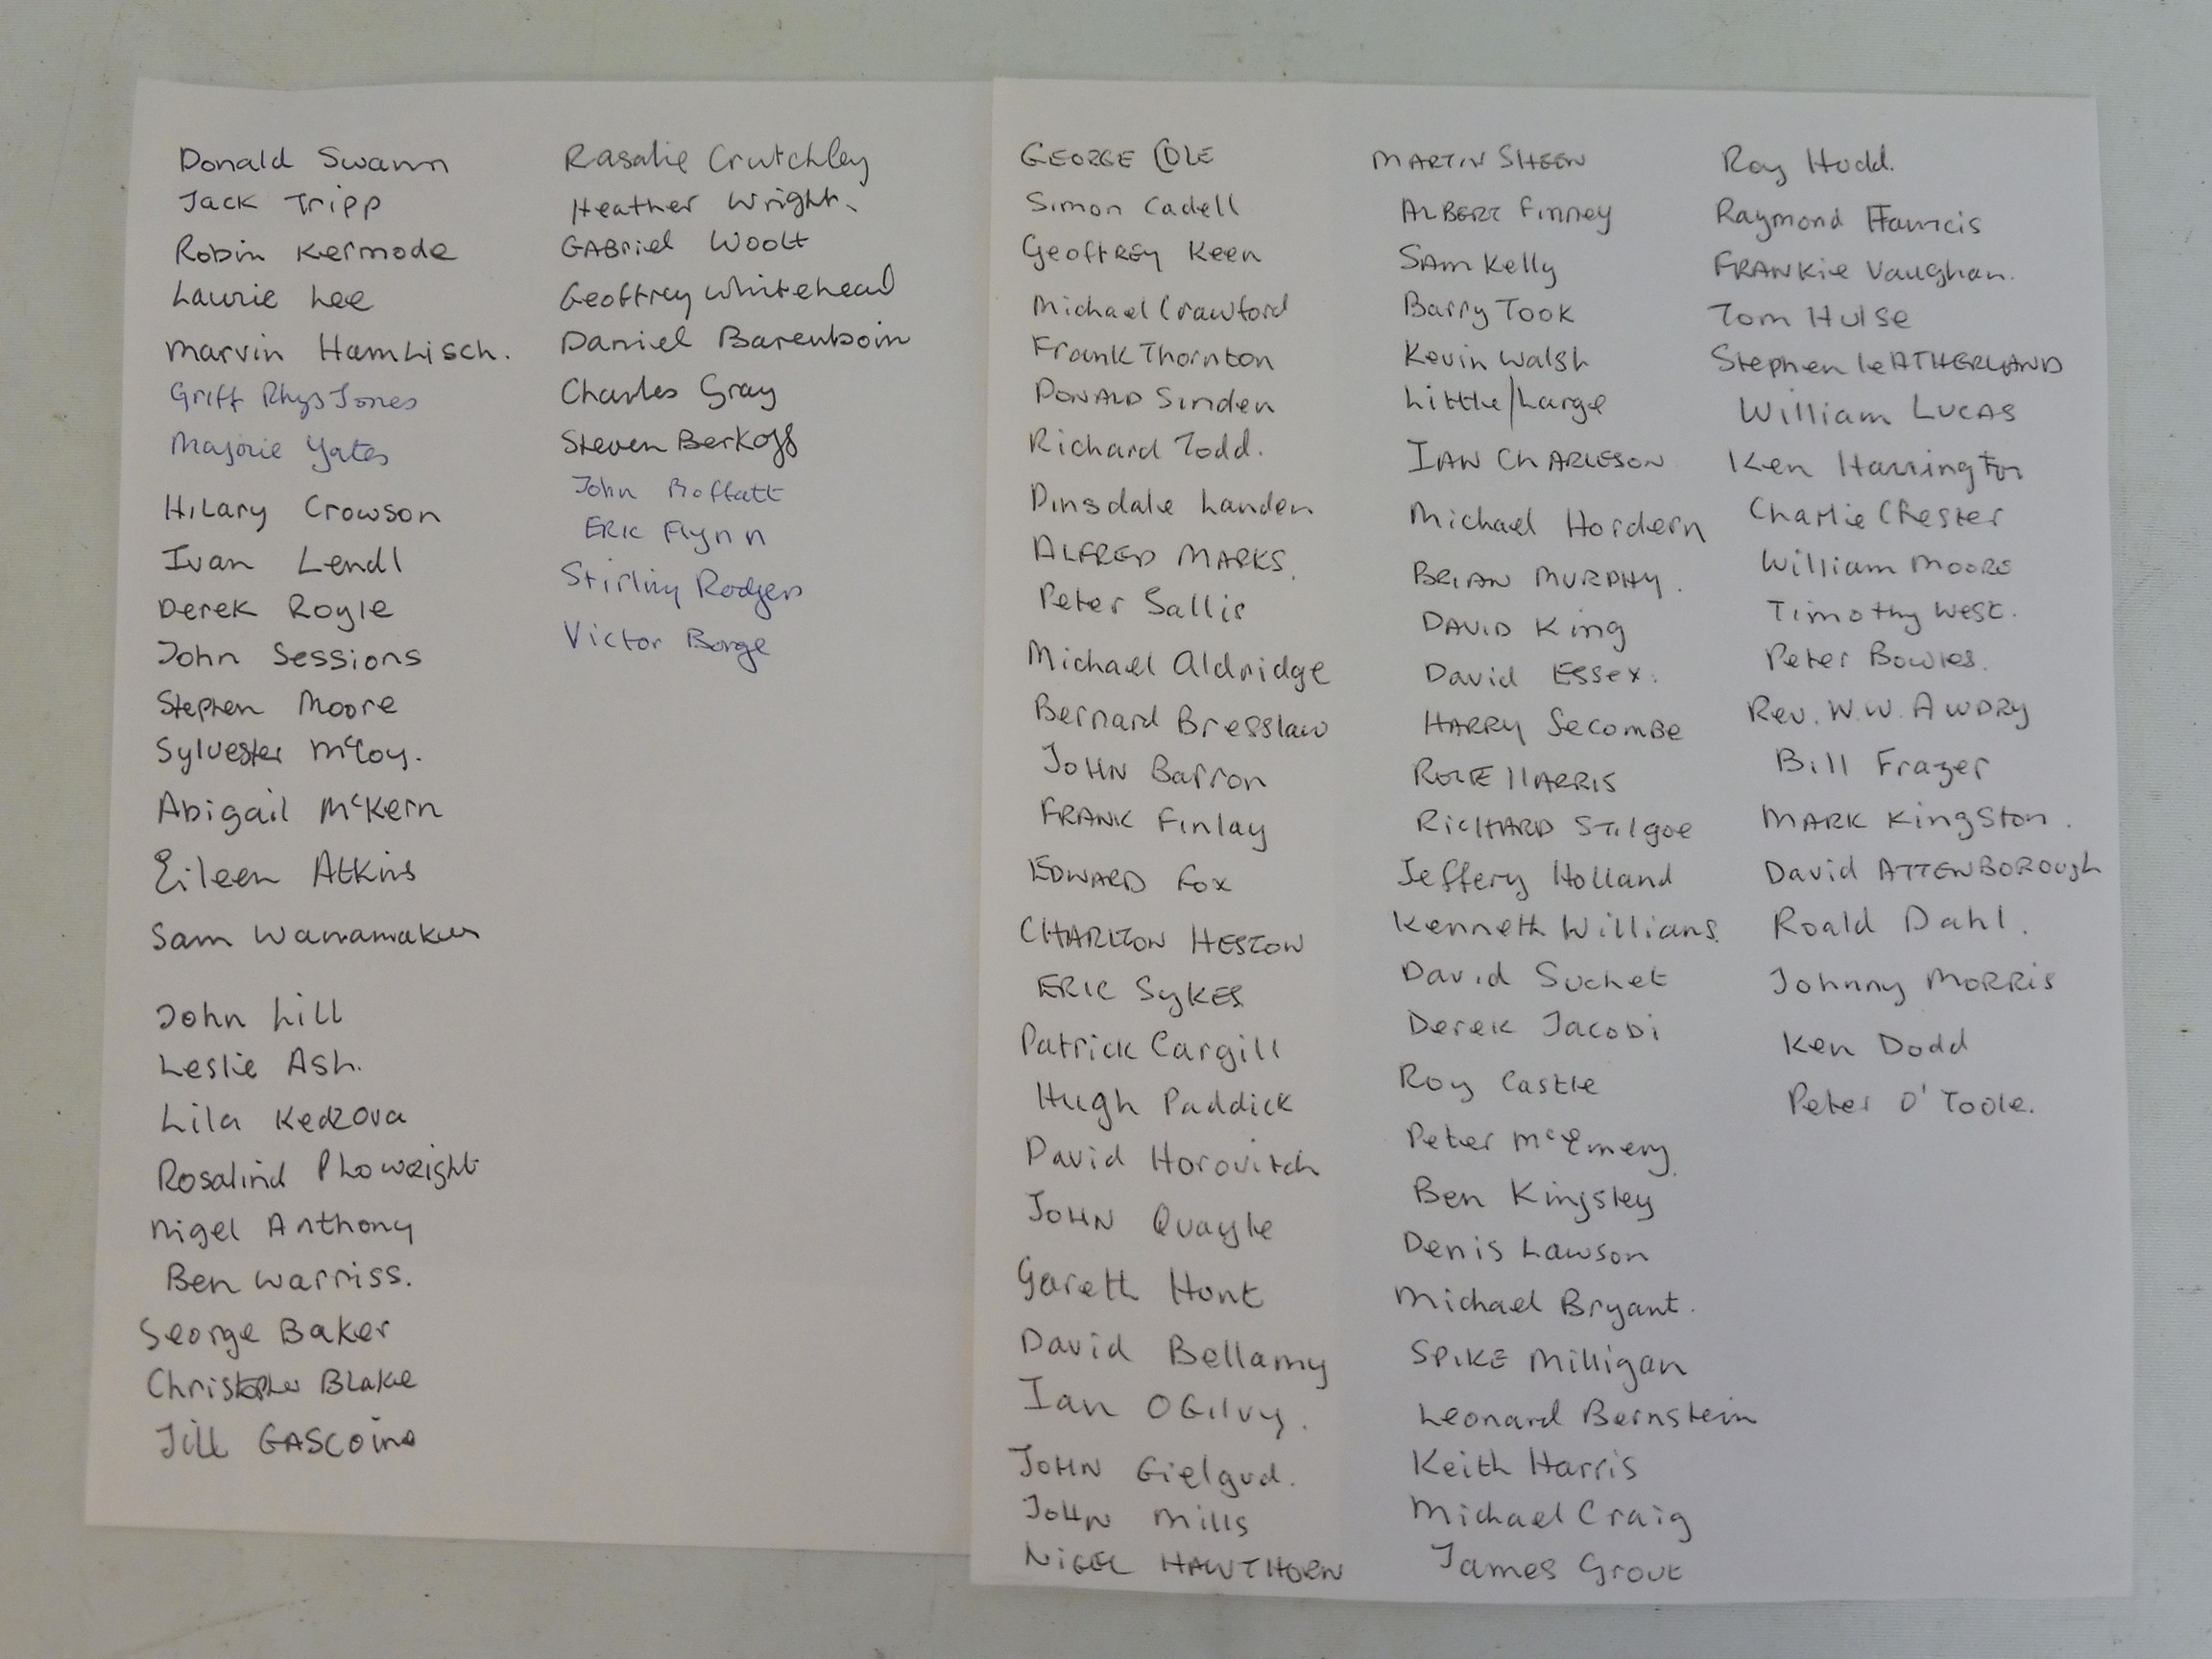 Donald Swann
Jack Tripp
Robin Kermode
Laurie Lee
Marvin Hamlisch.
Griff Rhys Jones
Marjorie Yates
Hilary Crowson
Ivan Lendl
Derek Royle
John Sessions
Stephen Moore
Sylvester McCoy.
Abigail McKern
Eileen Atkins
Sam Wanamaker
John Lill
Leslie Ash.
Lila Kedrova
Rosalind Plowright
Nigel Anthony
Ben Warriss.
George Baker
Christopher Blake
Jill GASCOINE
Rasalie Crutchley
Heather Wright.
GABriel Woolf
Geoffrey Whitehead
Daniel Barenboim
Charles Gray
Steven Berkoff
John Moffatt
ERIC Flynn
Stirling Rodgers
Victor Borge
GEORGE COLE
Simon Cadell
Geoffrey Keen
Michael Crawford
Frank Thornton
DONALD Sinden
Richard Todd.
Dinsdale Landen
ALFRED MARKS.
Peter Sallis
Michael Aldridge
Bernard Bresslaw
JOHN Barron
FRANK Finlay
EDWARD Fox
CHARLTON HESTON
ERIC SYKES
Patrick Cargill
Hugh Paddick
David Horovitch
JOHN Quayle
Gareth Hunt
David Bellamy
Ian OGilvy.
JOHN Gielgud.
JOHN Mills
NIGEL HAWTHORN
MARTIN SHEEN
ALBERT Finney
SAM Kelly
Barry Took
Kevin Walsh
Little/Large
IAN CHARLESON
Michael Hordern
BRIAN MURPHY.
DAVID King
David Essex.
HARRY SecomBe
ROLF HARRIS
RICHARD Stilgoe
Jeffery Holland
Kenneth Williams.
David Suchet
Derek Jacobi
Roy Castle
Peter McEnery.
Ben Kingsley
Denis Lawson
Michael Bryant.
SPIKE Milligan
Leonard Bernstein
Keith Harris
Michael Craig
James Grout
Roy Hudd.
Raymond Francis
FRANKie Vaughan.
Tom Hulse
Stephen leATHERLAND
William LUCAS
Ken Harrington
Charlie Chester
William Moore
Timothy West.
Peter Bowles.
Rev. W.W. AWDRY
Bill Frazer
MARK Kingston.
David ATTENBOROUgh
Roald Dahl.
Johnny MORRIS
Ken Dodd
Peter O'Toole.